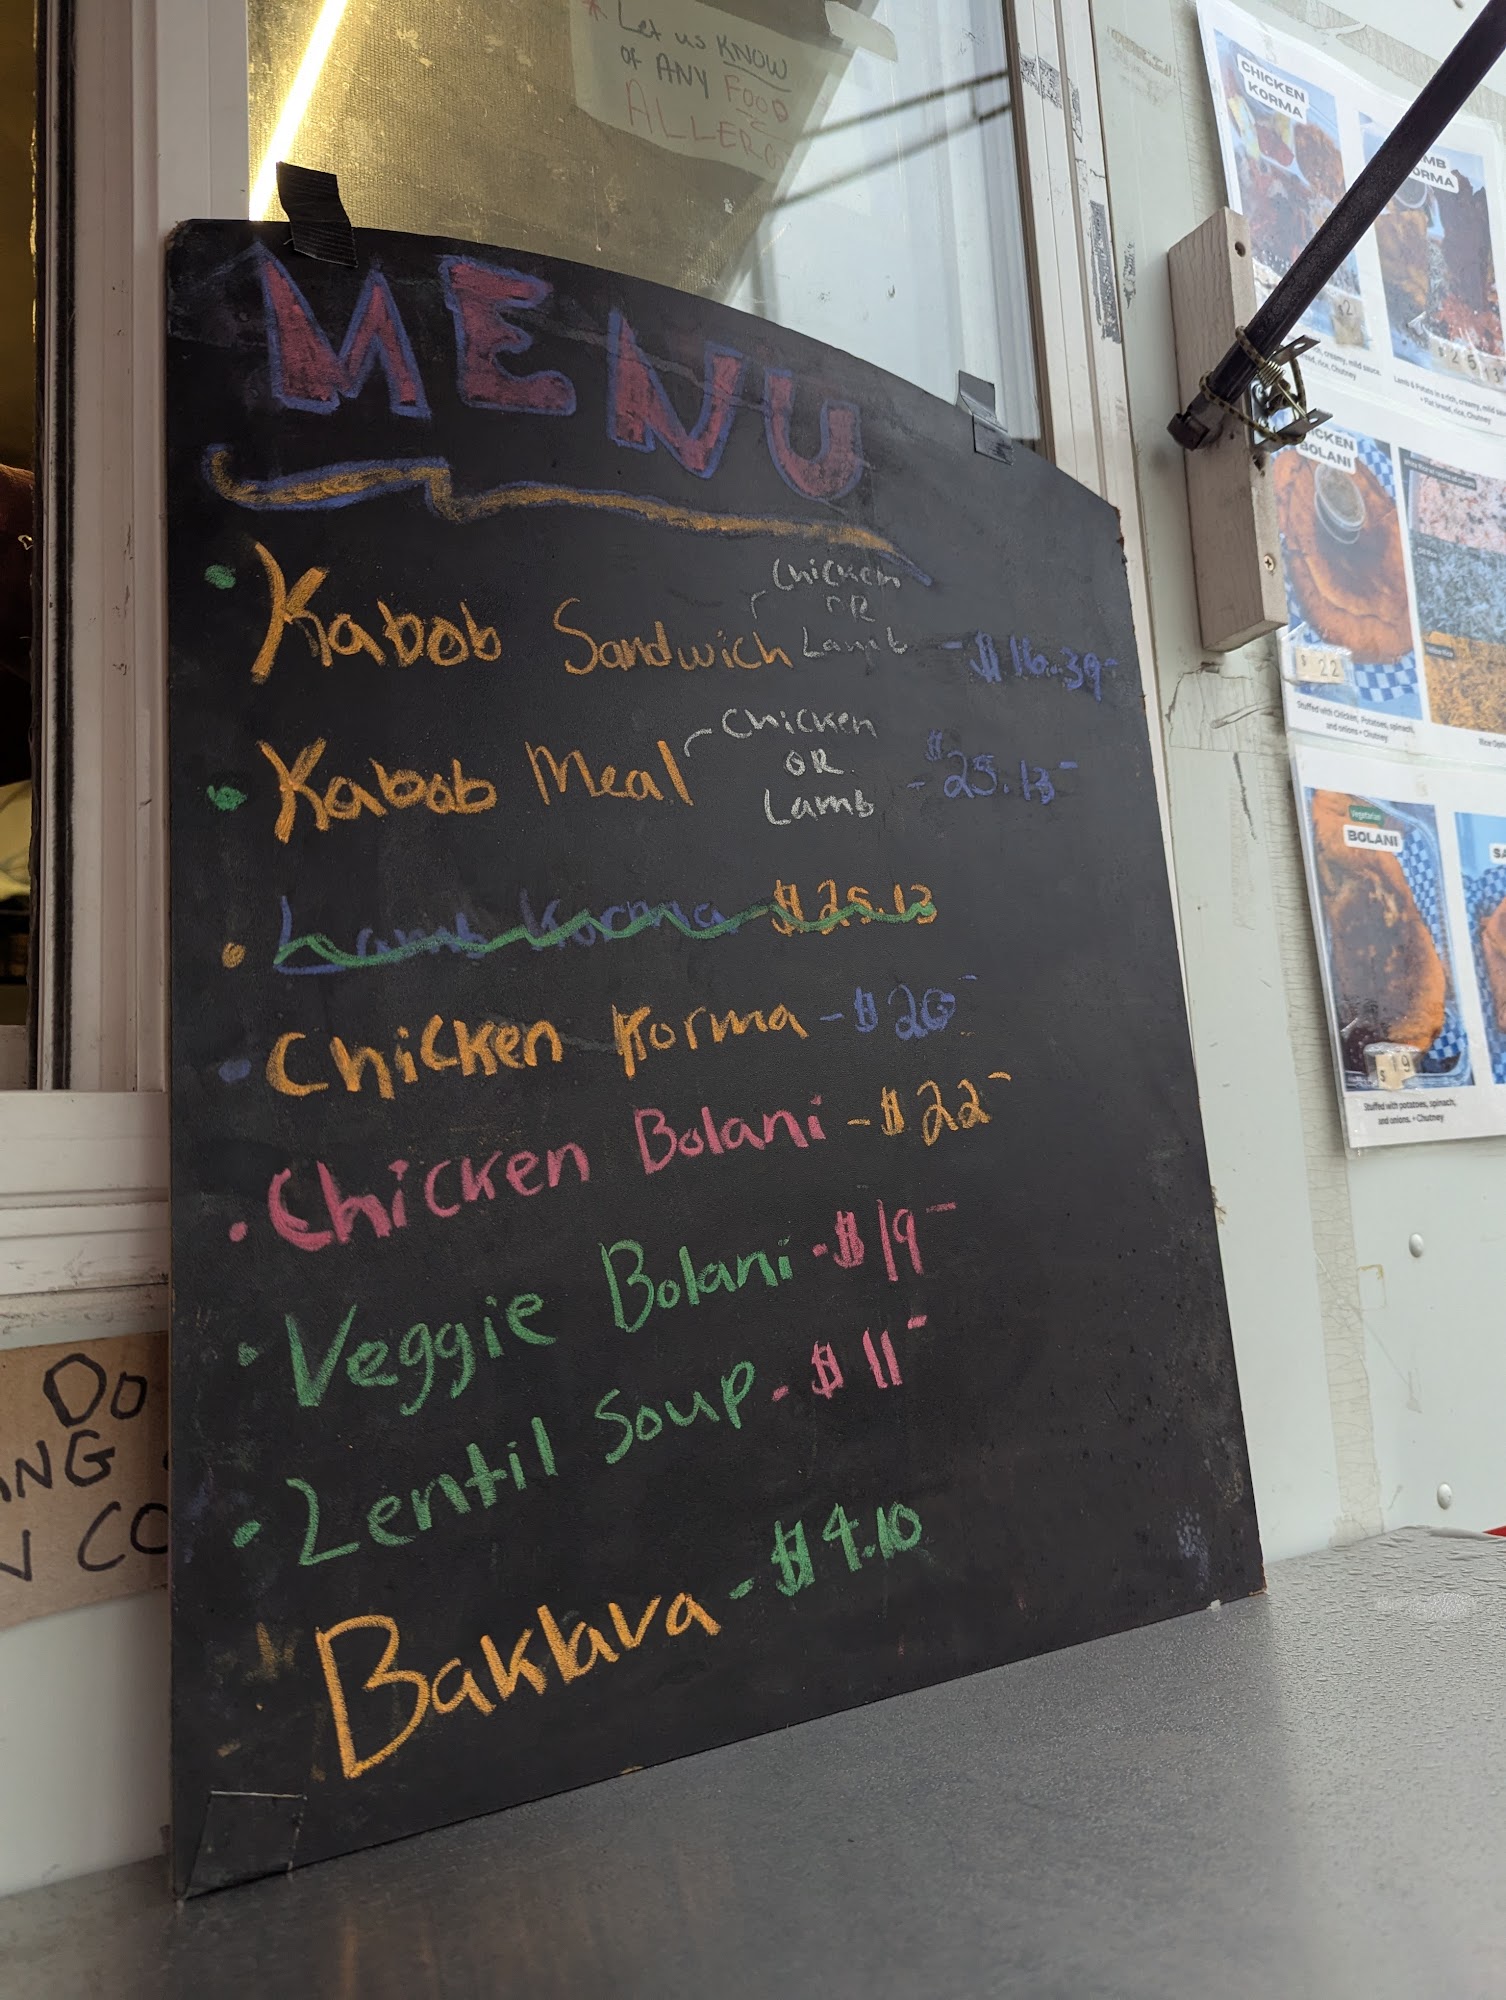 * Let us KNOW
of ANY FOOD
ALLERG
MENU
• Kabob Sandwich Chicken OR Lamb - $16.39
• Kabob Meal Chicken OR Lamb - $25.13
• Lamb Korma $25.13
• Chicken Korma - $20
• Chicken Bolani - $22
• Veggie Bolani - $19
• Lentil Soup - $11
Baklava - $4.10
DO
NG
CO
CHICKEN
KORMA
MB
ORMA
$25.13
creamy, mild sauce.
bread, rice, Chutney
Lamb & Potato in a rich, creamy, mild
+ Flat bread, rice, Chutney
ICKEN
BOLANI
$22
Stuffed with Chicken, Potatoes, spinach,
and onions + Chutney
Vegetarian
BOLANI
$19
Stuffed with potatoes, spinach,
and onions. + Chutney
SA